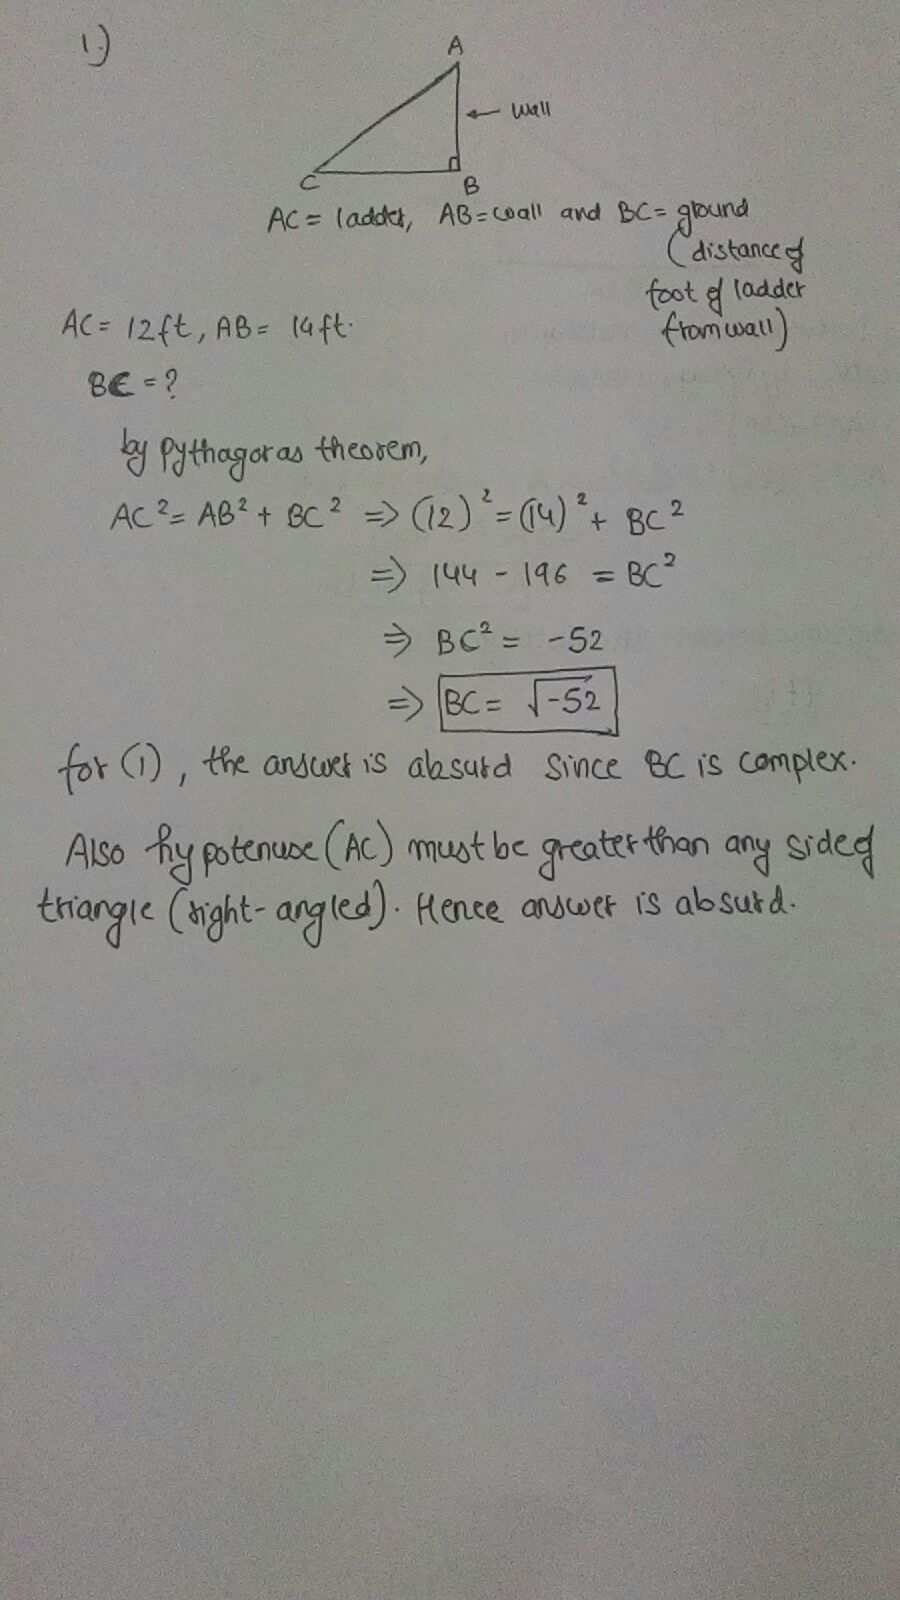 1.)
A
← wall
C
B
AC = ladder, AB = wall and BC = ground
(distance of
foot of ladder
from wall)
AC = 12ft, AB = 14ft.
BC = ?
by pythagoras theorem,
AC² = AB² + BC² => (12)² = (14)² + BC²
=> 144 - 196 = BC²
=> BC² = -52
=> BC = √-52
for (1), the answer is absurd since BC is complex.
Also hypotenuse (AC) must be greater than any side of
triangle (right-angled). Hence answer is absurd.